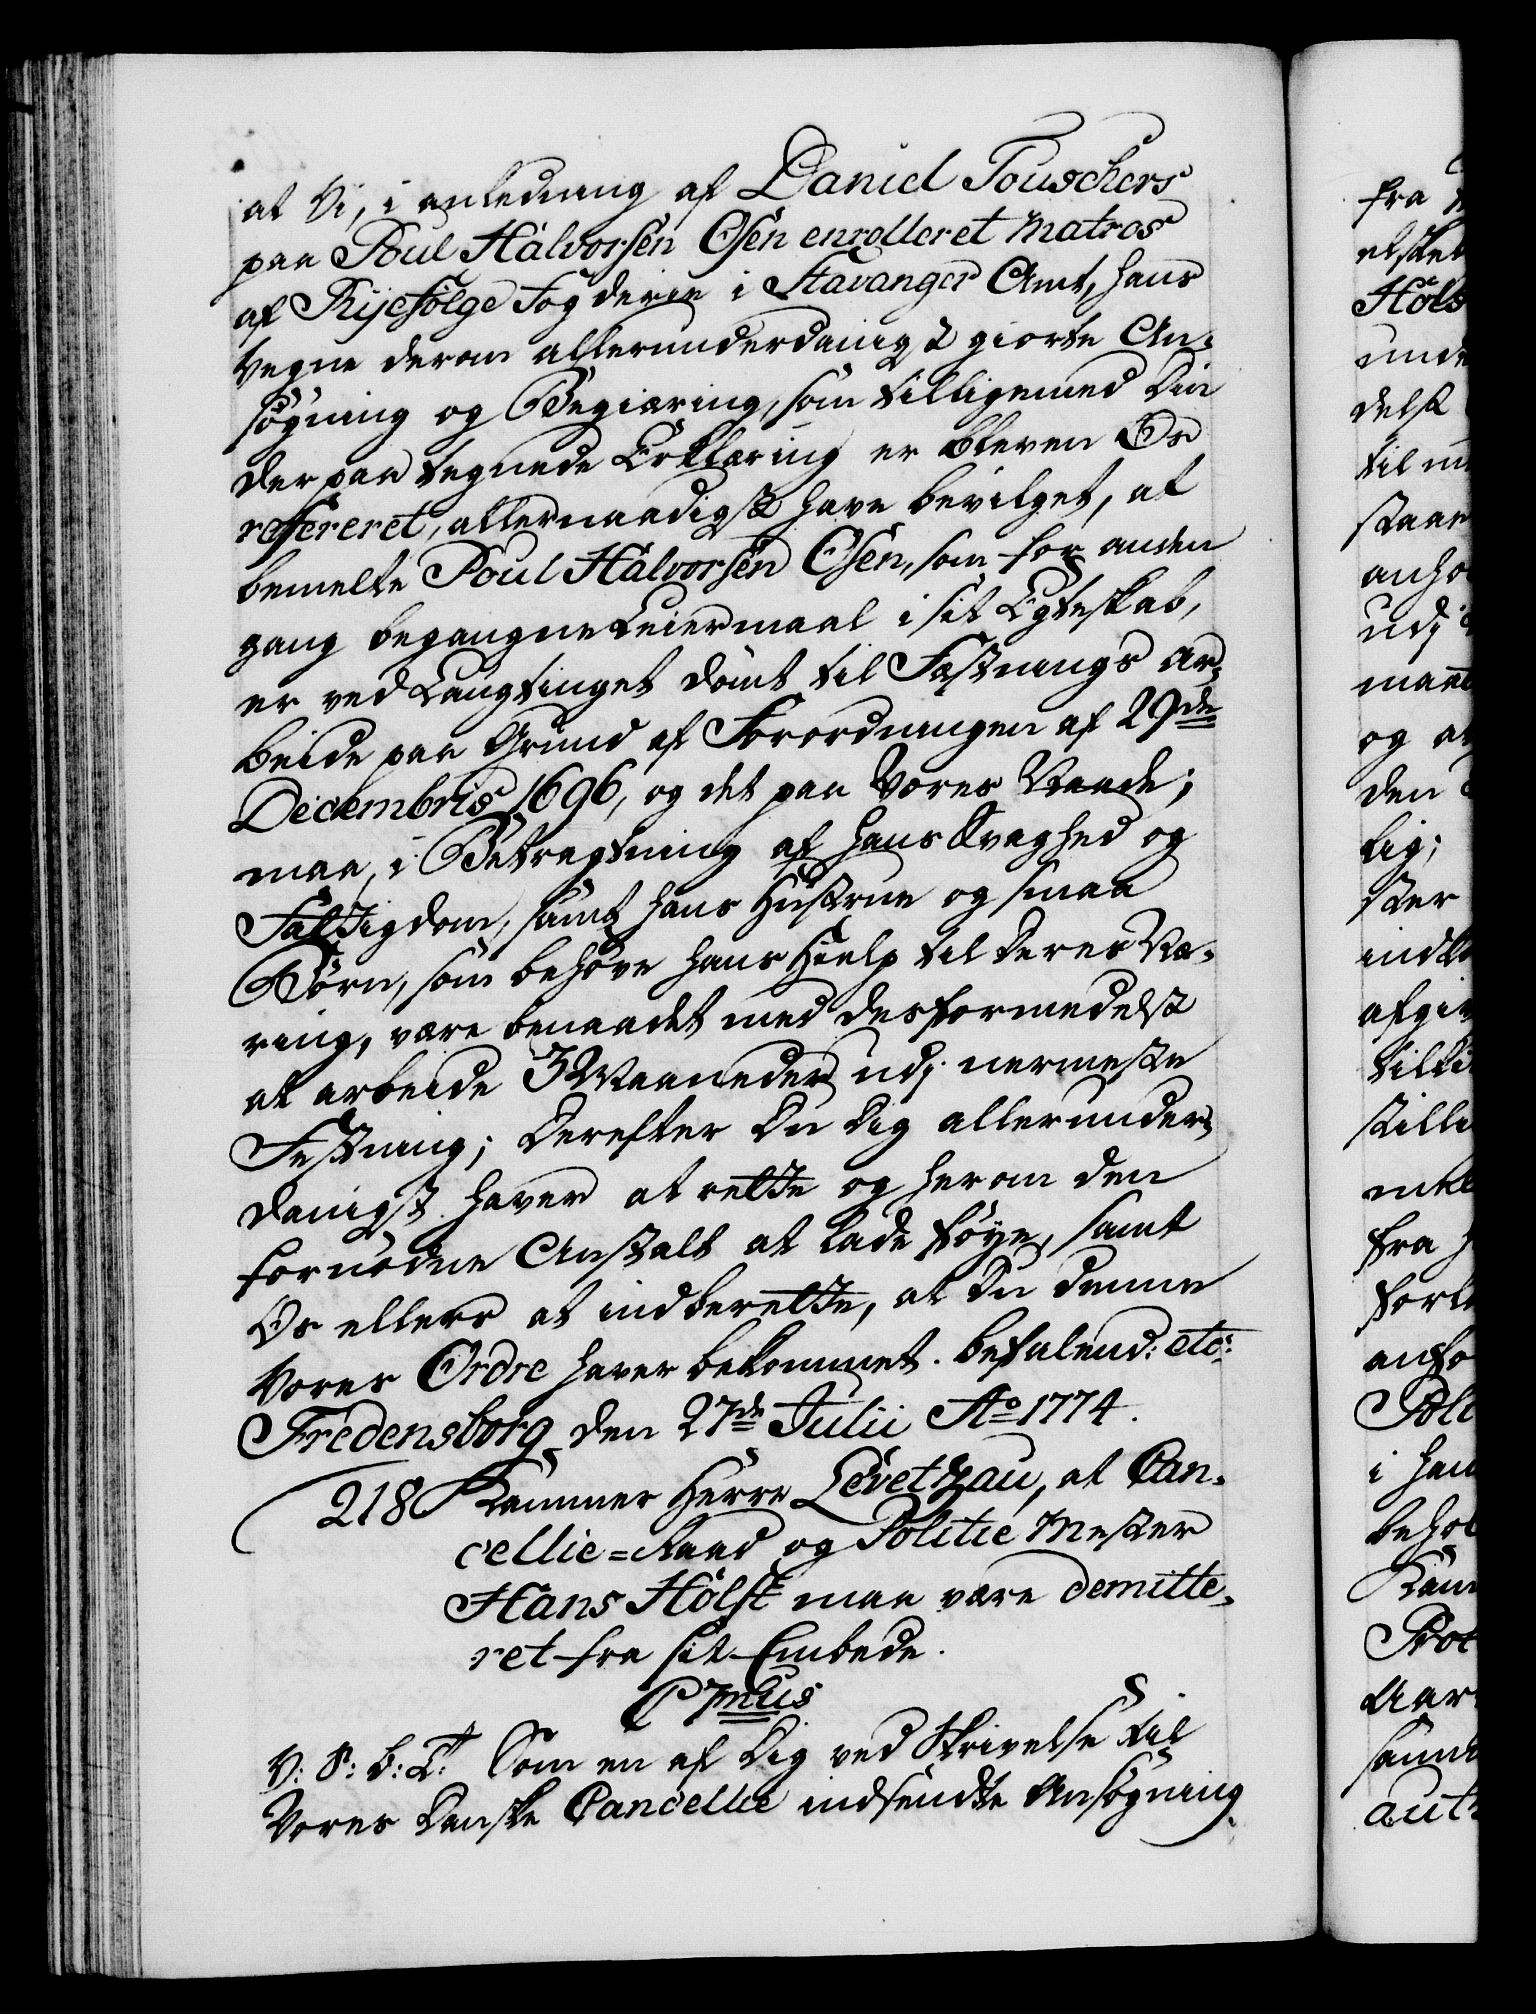 at Vi, i anledning af Daniel Touschers
paa Poul Halvorsen Osen enrolleret Matros
af Ryefølge Fogderie i Stavanger Amt, hans
Vegne derom allerunderdanigst giorte An-
søgning og Begiæring, som tilligemed Din
derpaa tegnede Erklæring er bleven Os
refereret, allernaadigst have bevilget, at
bemelte Poul Halvorsen Osen, som for anden
gang begangne Leiermaal i sit Egteskab,
er ved Laugtinget dömt til Fæstnings Ar-
beide paa Grund af Forordningen af 29de
Decembris 1696, og det paa Vores Naade;
maa, i Betragtning af hans Svaghed og
Fattigdom, samt hans Hustrue og smaa
Börn, som behøve hans Hielp til deres Næ-
ring, være benaadet med desformedelst
at arbeide 3 Maaneder udj nermeste
Festning; Derefter Du Dig allerunder-
danigst haver at rette og herom den
fornødne Anstalt at lade føye, samt
Os ellers at indberette, at Du denne
Vores Ordre haver bekommet. Befalend: etc:
Fredensborg den 27de Julii Ao 1774.
218 Kammer Herre Levetzau, at Can-
cellie=Raad og Politie Mester
Hans Holst maa være demitte-
ret fra sit Embede.
C 7mus
V: S: B: T: Som en af Dig ved Skrivelse til
Vores Danske Cancellie indsendte Ansøgning
fra
Holst
unde
delst
til
anho
udj
og at
den
lig;
ster
afgiv
fra
anfo
Poli
i han
sam
auth